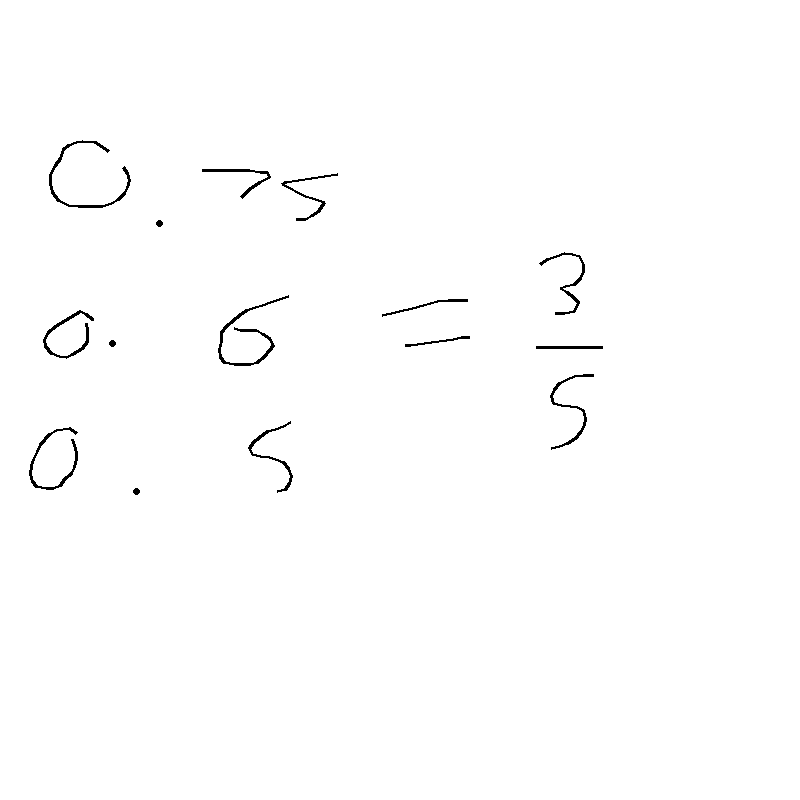 0.75
0.6 = 3/5
0.5